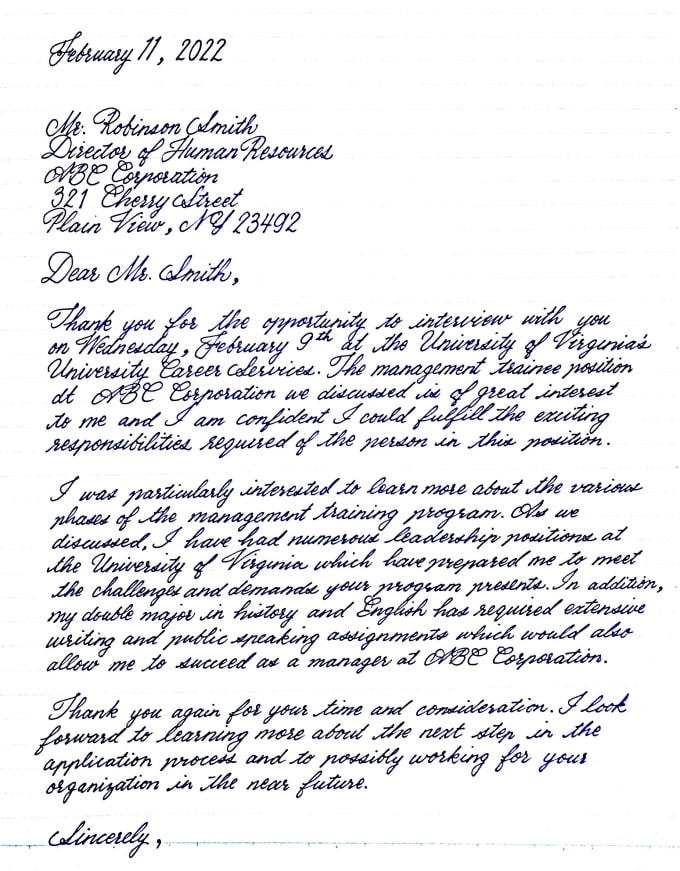 February 11, 2022
Mr. Robinson Smith
Director of Human Resources
ABC Corporation
321 Cherry Street
Plain View, NY 23492
Dear Mr. Smith,
Thank you for the opportunity to interview with you
on Wednesday, February 9th at the University of Virginia's
University Career Services. The management trainee position
at ABC Corporation we discussed is of great interest
to me and I am confident I could fulfill the exciting
responsibilities required of the person in this position.
I was particularly interested to learn more about the various
phases of the management training program. As we
discussed, I have had numerous leadership positions at
the University of Virginia which have prepared me to meet
the challenges and demands your program presents. In addition,
my double major in history and English has required extensive
writing and public speaking assignments which would also
allow me to succeed as a manager at ABC Corporation.
Thank you again for your time and consideration. I look
forward to learning more about the next step in the
application process and to possibly working for your
organization in the near future.
Sincerely,